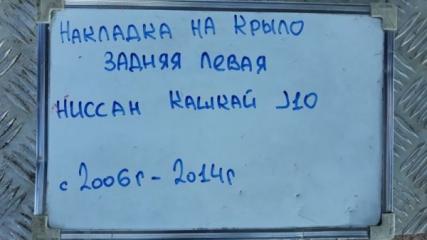 Накладка на крыло
задняя левая
Ниссан Кашкай J10
с 2006г - 2014г